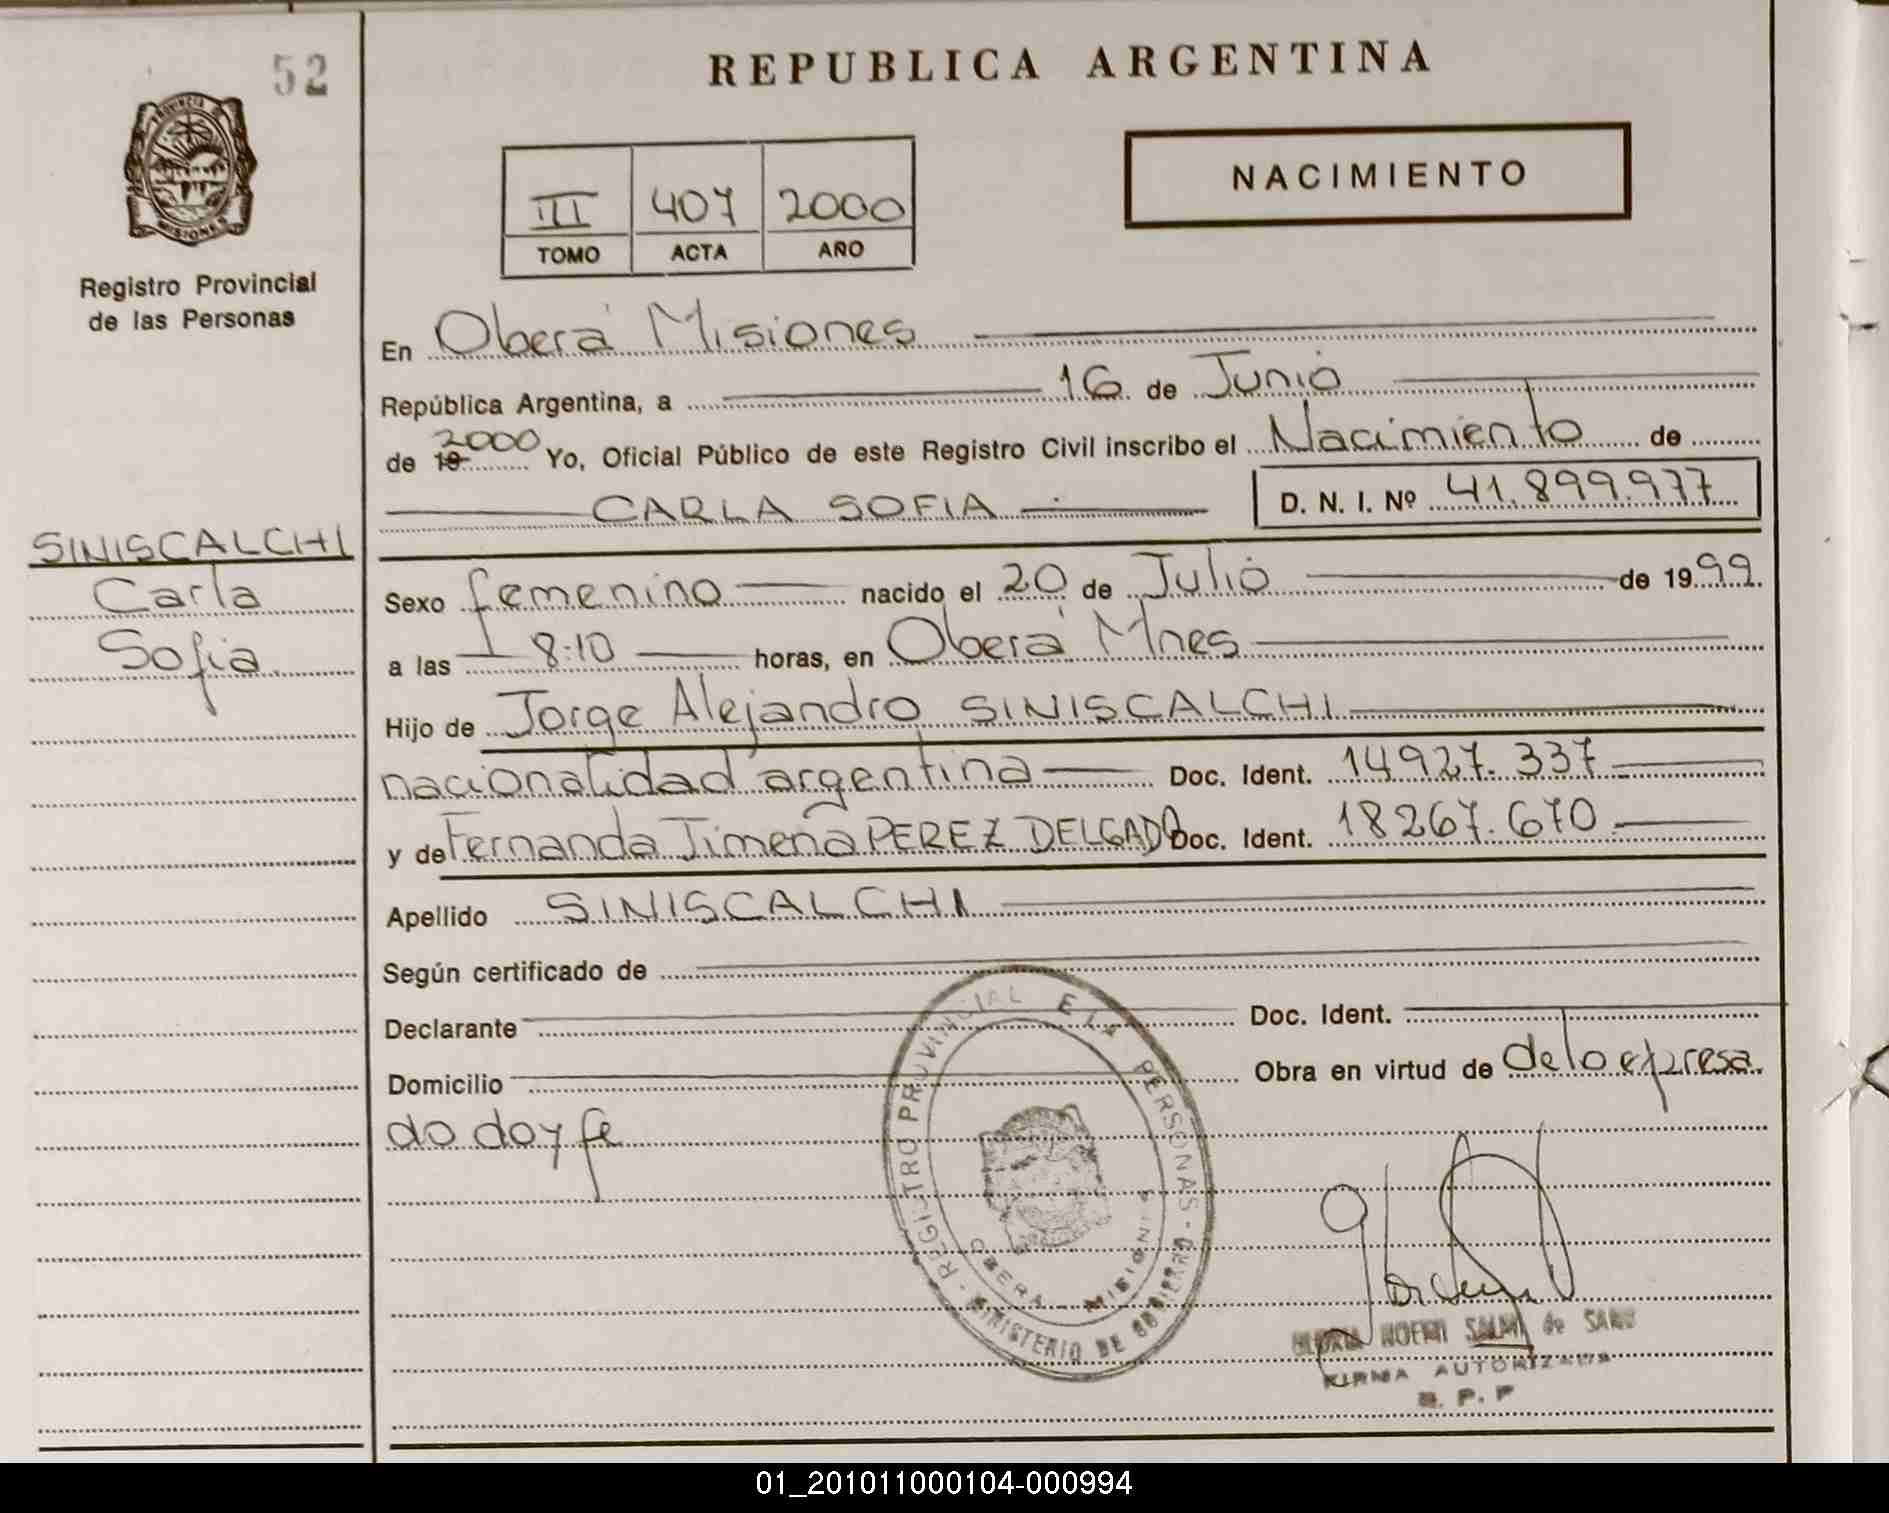 52
REPUBLICA ARGENTINA
PROVINCIA DE MISIONES
NACIMIENTO
III 407 2000
TOMO ACTA AÑO
Registro Provincial
de las Personas
En Oberá Misiones
República Argentina, a 16 de Junio
de 19 2000 Yo, Oficial Público de este Registro Civil inscribo el Nacimiento de
CARLA SOFIA D. N. I. Nº 41.899.977
SINISCALCHI
Carla
Sofia
Sexo femenino nacido el 20 de Julio de 1999.
a las 8:10 horas, en Oberá Mnes
Hijo de Jorge Alejandro SINISCALCHI
nacionalidad argentina Doc. Ident. 14927.337
y de Fernanda Jimena PEREZ DELGADO Doc. Ident. 18267.670
Apellido SINISCALCHI
Según certificado de
Declarante Doc. Ident.
Domicilio Obra en virtud de delo epresa
do doy fe
REGISTRO PROVINCIAL PERSONAS
OBERA - MISIONES
MINISTERIO DE GOBIERNO
NOEMI de
FIRMA AUTORIZADA
R. P. P
01_201011000104-000994